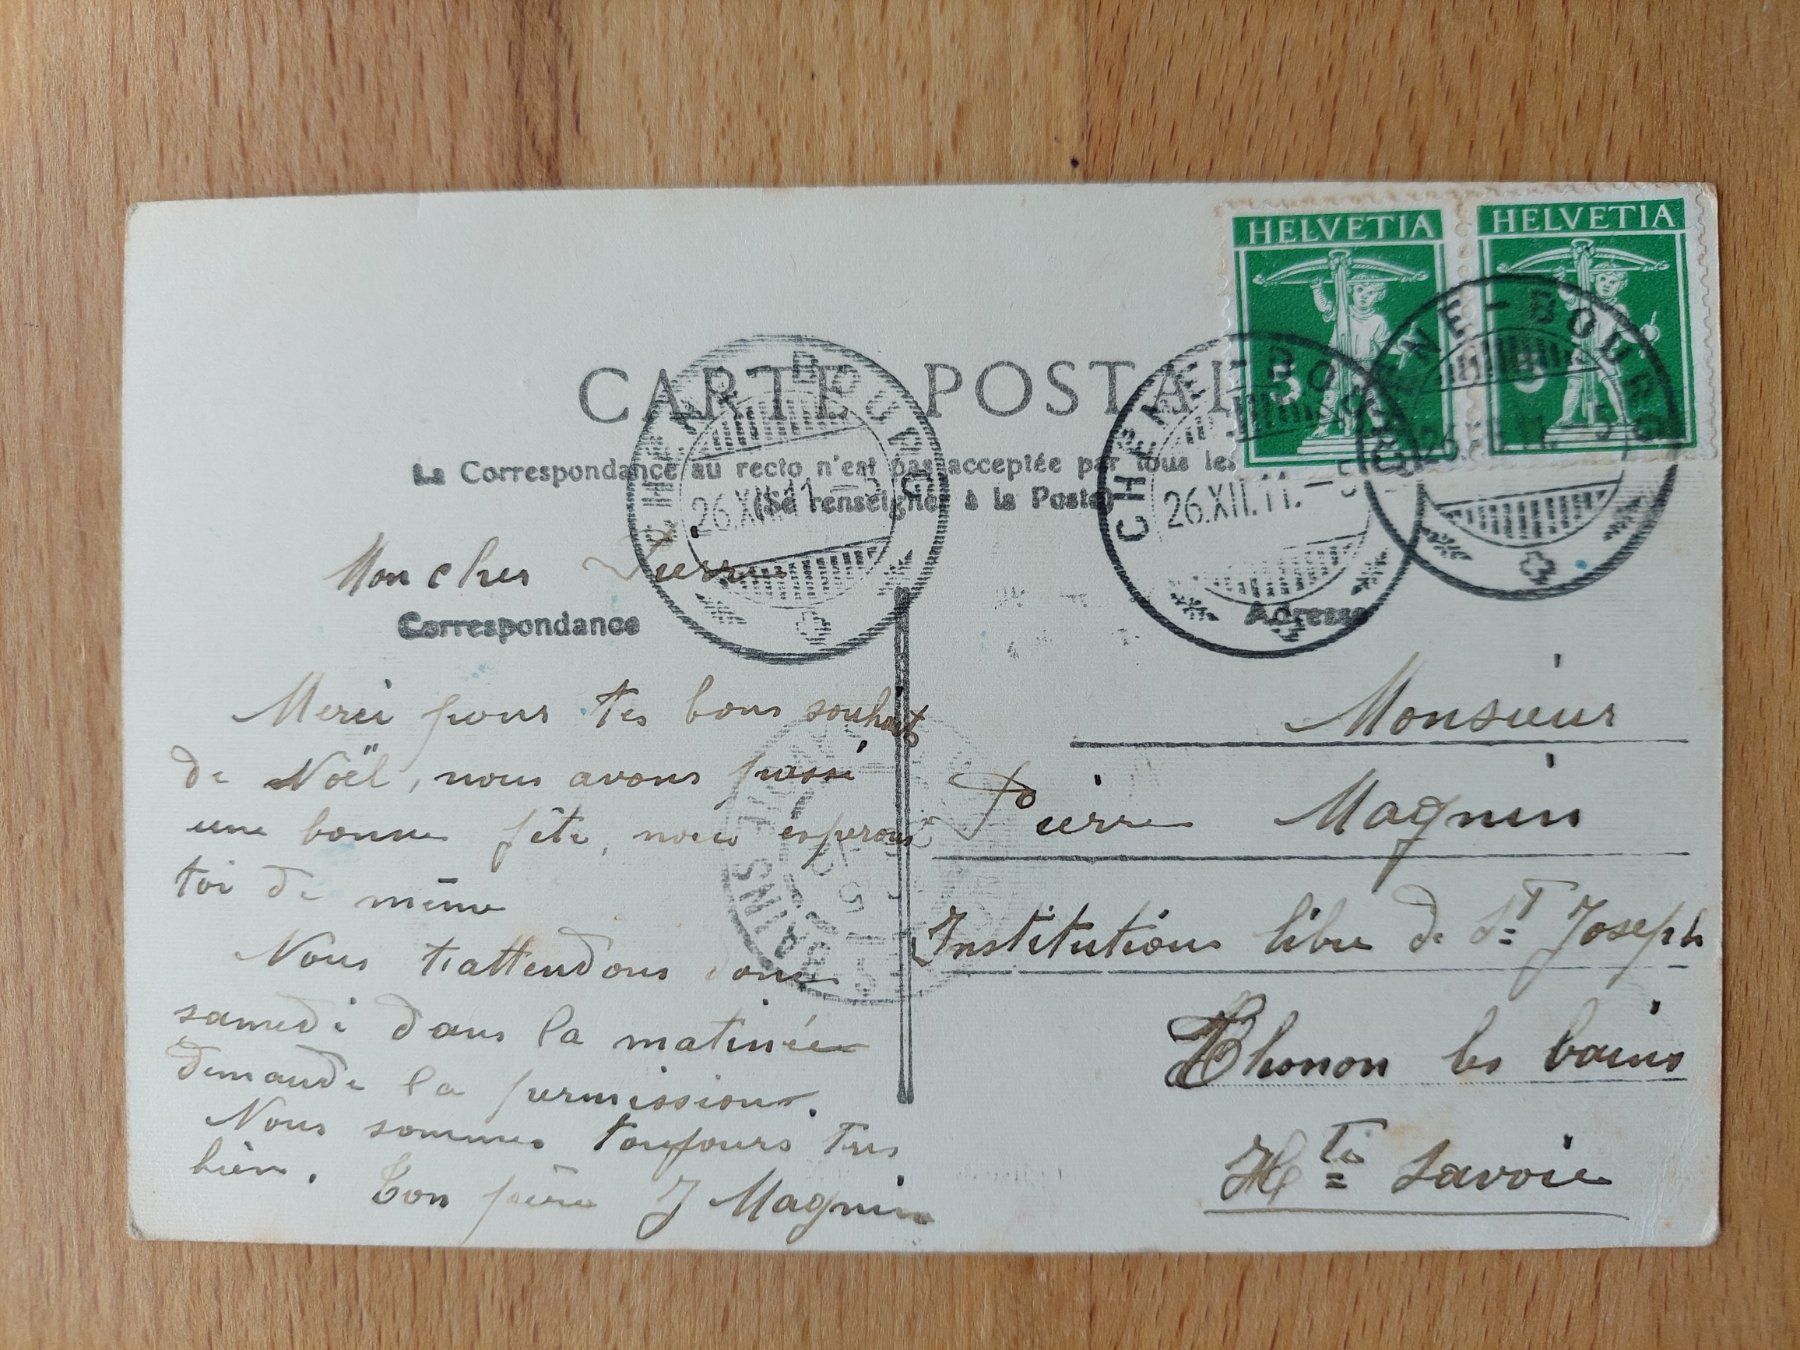 HELVETIA HELVETIA
5 5
CARTE POSTALE
CHÊNE-BOURG
26.XII.11.-5
CHÊNE-BOURG
26.XII.11.-5
CHÊNE-BOURG
26.XII.11.-5
La Correspondance au recto n'est pas acceptée par tous les
(Se renseigner à la Poste)
Mon cher Pierre
Correspondance
Merci pour tes bons souhaits
de Noël, nous avons passé
une bonne fête, nous esperons
toi de même
Nous t'attendons donc
samedi dans la matinée
demande la permission.
Nous sommes toujours très
bien. Ton père J Magnin
Adresse
Monsieur
Pierre Magnin
Institution libre de St Joseph
Thonon les bains
Hte Savoie
BAINS